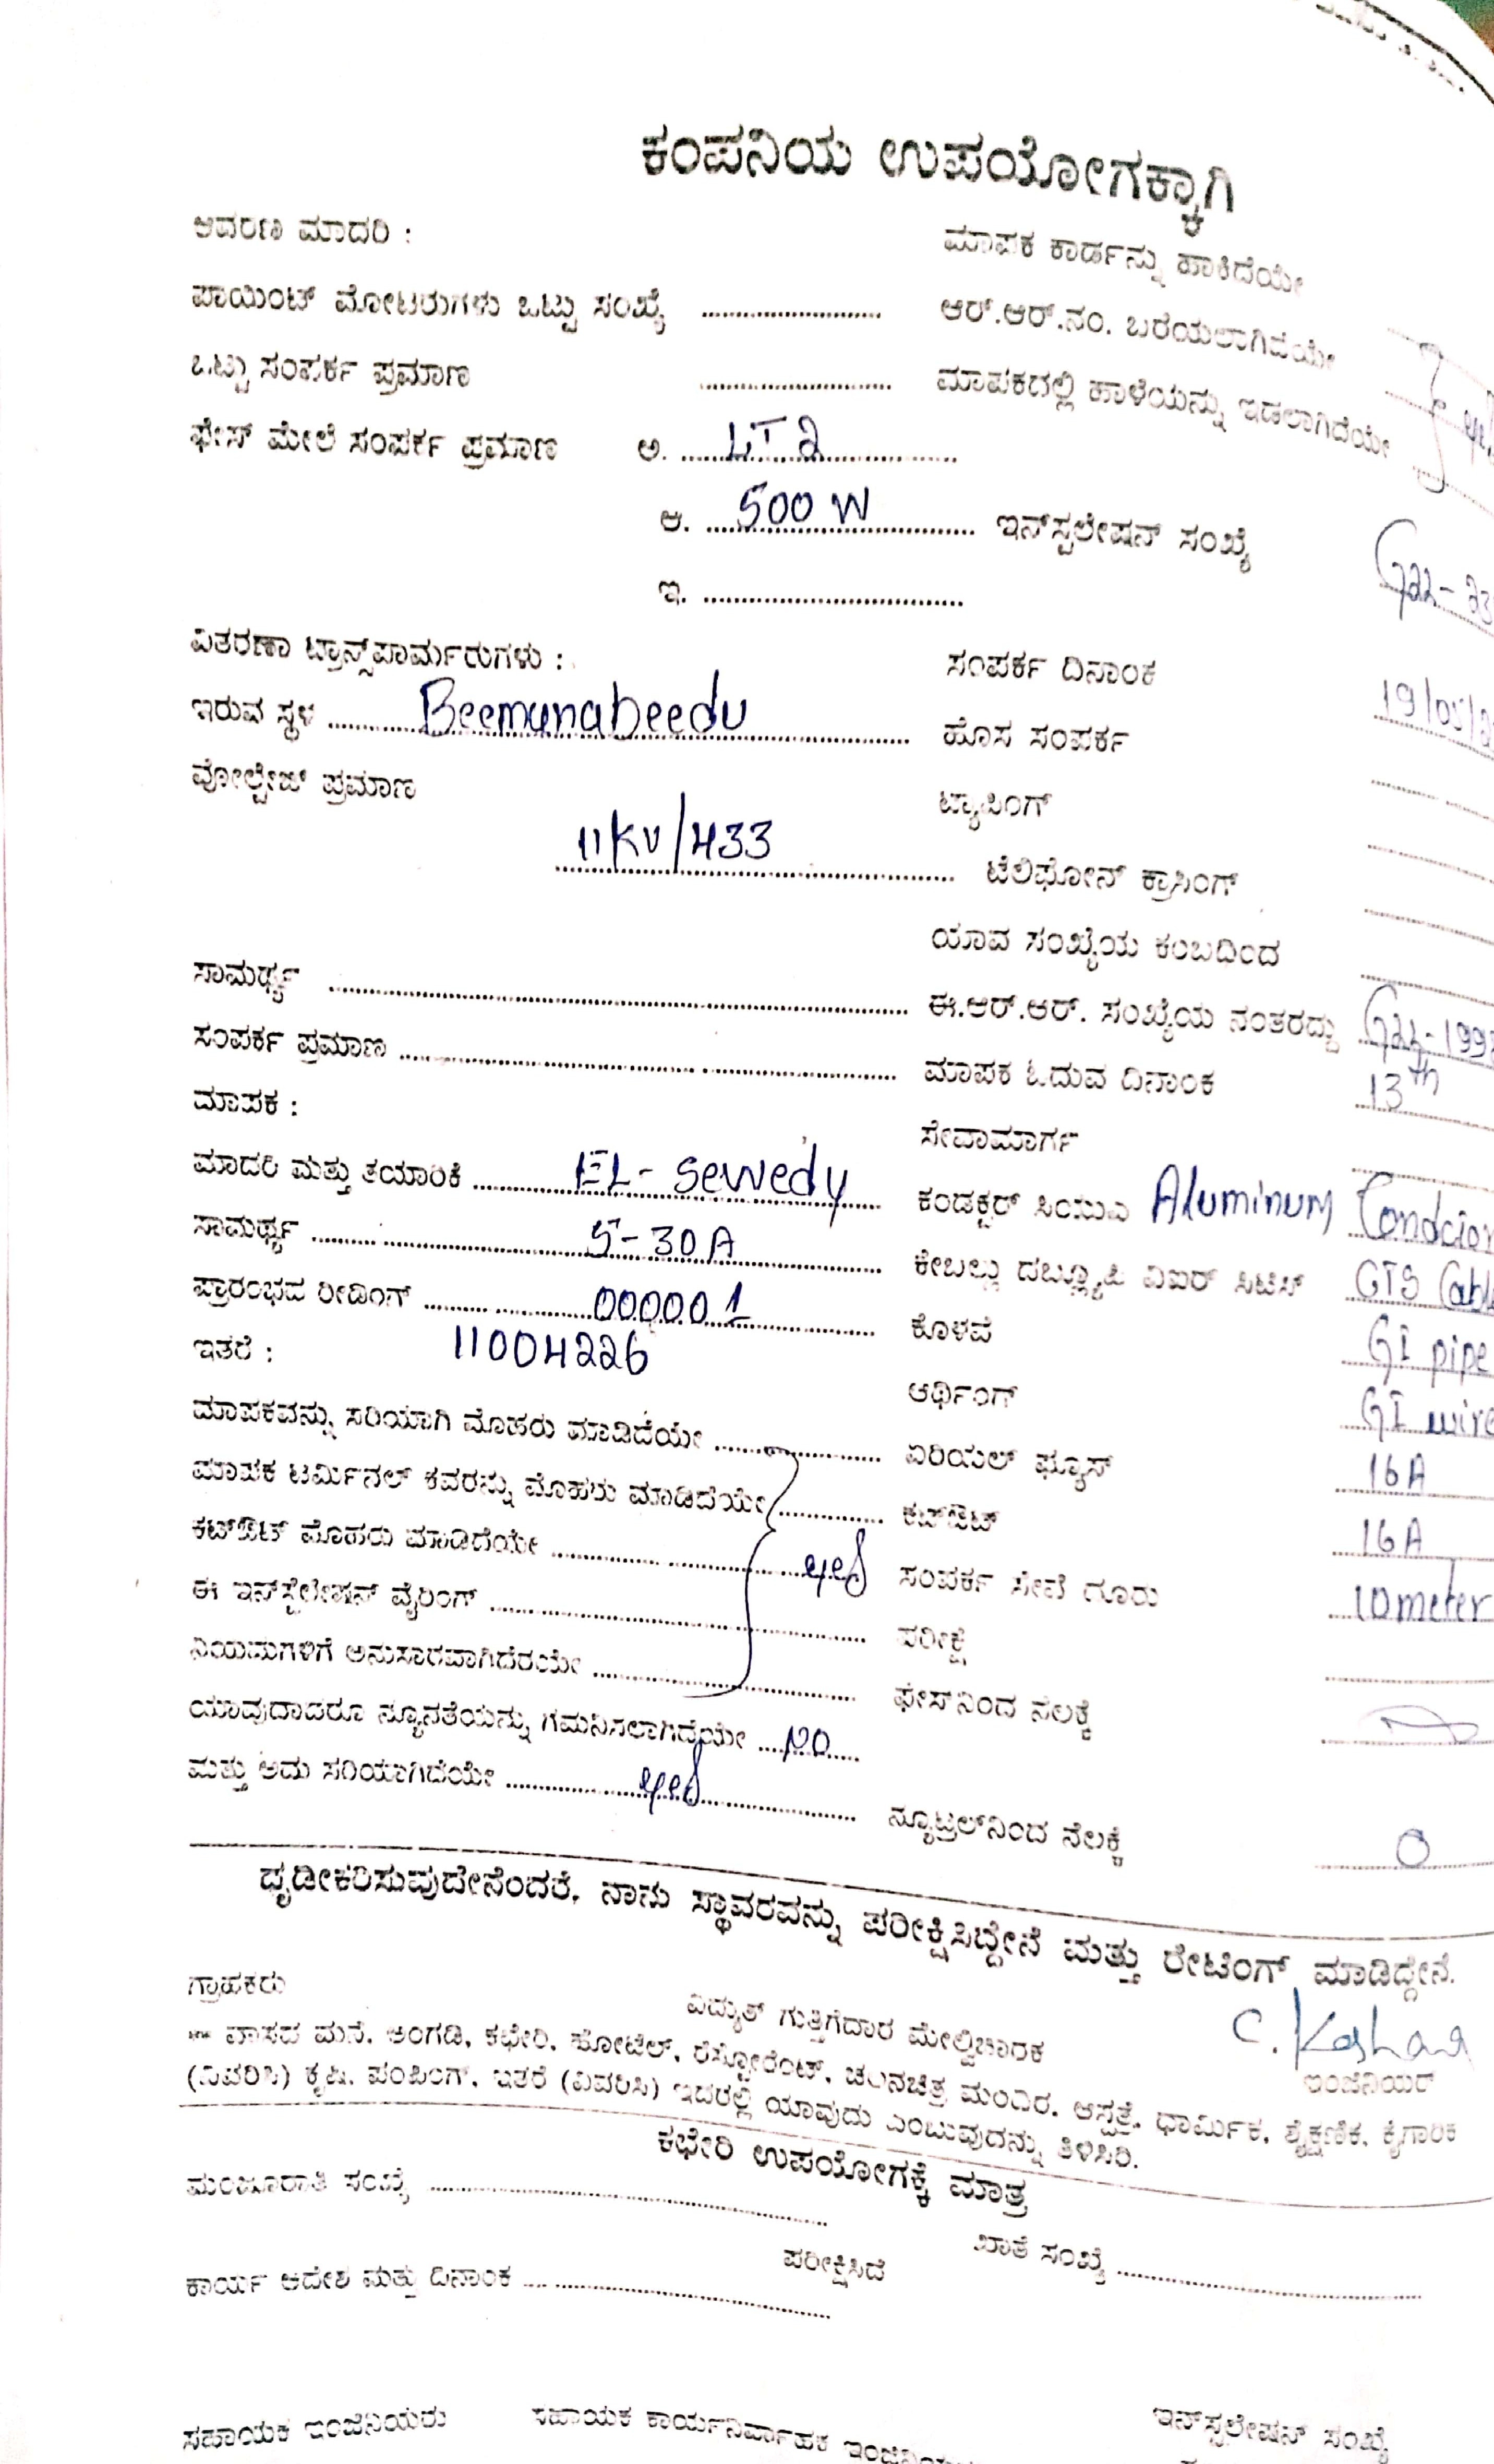 ಕಂಪನಿಯ ಉಪಯೋಗಕ್ಕಾಗಿ
ಆವರಣ ಮಾದರಿ :
ಮಾಪಕ ಕಾರ್ಡನ್ನು ಹಾಕಿದೆಯೇ
ಪಾಯಿಂಟ್ ಮೋಟರುಗಳು ಒಟ್ಟು ಸಂಖ್ಯೆ ........................
ಆರ್.ಆರ್.ನಂ. ಬರೆಯಲಾಗಿದೆಯೇ
ಒಟ್ಟು ಸಂಪರ್ಕ ಪ್ರಮಾಣ ........................
ಮಾಪಕದಲ್ಲಿ ಹಾಳೆಯನ್ನು ಇಡಲಾಗಿದೆಯೇ
ಫೇಸ್ ಮೇಲೆ ಸಂಪರ್ಕ ಪ್ರಮಾಣ ಅ. LT 2
ಆ. 500 W
ಇನ್‌ಸ್ಟಲೇಷನ್ ಸಂಖ್ಯೆ G22-23
ಇ. ........................
ವಿತರಣಾ ಟ್ರಾನ್ಸ್‌ಪಾರ್ಮರುಗಳು :
ಸಂಪರ್ಕ ದಿನಾಂಕ 19/05/2
ಇರುವ ಸ್ಥಳ Beemanabeedu
ಹೊಸ ಸಂಪರ್ಕ
ವೋಲ್ಟೇಜ್ ಪ್ರಮಾಣ
ಟ್ಯಾಪಿಂಗ್
11KV/433
ಟೆಲಿಫೋನ್ ಕ್ರಾಸಿಂಗ್
ಯಾವ ಸಂಖ್ಯೆಯ ಕಂಬದಿಂದ
ಸಾಮರ್ಥ್ಯ ........................
ಈ.ಆರ್.ಆರ್. ಸಂಖ್ಯೆಯ ನಂತರದ್ದು G22-199
ಸಂಪರ್ಕ ಪ್ರಮಾಣ ........................
ಮಾಪಕ ಓದುವ ದಿನಾಂಕ 13th
ಮಾಪಕ :
ಸೇವಾಮಾರ್ಗ
ಮಾದರಿ ಮತ್ತು ತಯಾರಿಕೆ EL- Sewedy
ಕಂಡಕ್ಟರ್ ಸಿಯುಎ Aluminum
ಸಾಮರ್ಥ್ಯ 5-30A
ಕೇಬಲ್ಲು ದಬ್ಲ್ಯೂಪಿ ವಿಐರ್ ಸಿಟಿಸ್ GTS
ಪ್ರಾರಂಭದ ರೀಡಿಂಗ್ 000001
ಕೊಳವೆ GI pipe
ಇತರೆ : 11004226
ಆರ್ಥಿಂಗ್ GI wire
ಮಾಪಕವನ್ನು ಸರಿಯಾಗಿ ಮೊಹರು ಮಾಡಿದೆಯೇ ........................
ಏರಿಯಲ್ ಫ್ಯೂಸ್ 16A
ಮಾಪಕ ಟರ್ಮಿನಲ್ ಕವರನ್ನು ಮೊಹರು ಮಾಡಿದೆಯೇ ........................
ಕಟ್‌ಔಟ್ 16A
ಕಟ್‌ಔಟ್ ಮೊಹರು ಮಾಡಿದೆಯೇ yes
ಸಂಪರ್ಕ 10meter
ಈ ಇನ್‌ಸ್ಟೇಲೇಷನ್ ವೈರಿಂಗ್ ........................
ಪರೀಕ್ಷೆ
ನಿಯಮಗಳಿಗೆ ಅನುಸಾರವಾಗಿದೆರಯೇ ........................
ಫೇಸ್‌ನಿಂದ ನೆಲಕ್ಕೆ
ಯಾವುದಾದರೂ ನ್ಯೂನತೆಯನ್ನು ಗಮನಿಸಲಾಗಿದೆಯೇ NO
ಮತ್ತು ಅದು ಸರಿಯಾಗಿದೆಯೇ yes
ನ್ಯೂಟ್ರಲ್‌ನಿಂದ ನೆಲಕ್ಕೆ 0
ಧೃಡೀಕರಿಸುವುದೇನೆಂದರೆ, ನಾನು ಸ್ಥಾವರವನ್ನು ಪರೀಕ್ಷಿಸಿದ್ದೇನೆ ಮತ್ತು ರೇಟಿಂಗ್ ಮಾಡಿದ್ದೇನೆ.
ಗ್ರಾಹಕರು
ವಿದ್ಯುತ್ ಗುತ್ತಿಗೆದಾರ ಮೇಲ್ವಿಚಾರಕ
ಇಂಜಿನಿಯರ್
** ವಾಸದ ಮನೆ, ಅಂಗಡಿ, ಕಛೇರಿ, ಹೋಟೆಲ್, ರೆಸ್ಟೋರೆಂಟ್, ಚಲನಚಿತ್ರ ಮಂದಿರ, ಆಸ್ಪತ್ರೆ, ಧಾರ್ಮಿಕ, ಶೈಕ್ಷಣಿಕ, ಕೈಗಾರಿಕ
(ವಿವರಿಸಿ) ಕೃಷಿ, ಪಂಪಿಂಗ್, ಇತರೆ (ವಿವರಿಸಿ) ಇದರಲ್ಲಿ ಯಾವುದು ಎಂಬುವುದನ್ನು ತಿಳಿಸಿರಿ.
ಕಛೇರಿ ಉಪಯೋಗಕ್ಕೆ ಮಾತ್ರ
ಮಂಜೂರಾತಿ ಸಂಖ್ಯೆ ........................
ಖಾತೆ ಸಂಖ್ಯೆ ........................
ಪರೀಕ್ಷಿಸಿದೆ
ಕಾರ್ಯ ಆದೇಶ ಮತ್ತು ದಿನಾಂಕ ........................
ಸಹಾಯಕ ಇಂಜಿನಿಯರು
ಸಹಾಯಕ ಕಾರ್ಯನಿರ್ವಾಹಕ
ಇನ್‌ಸ್ಟಲೇಷನ್ ಸಂಖ್ಯೆ